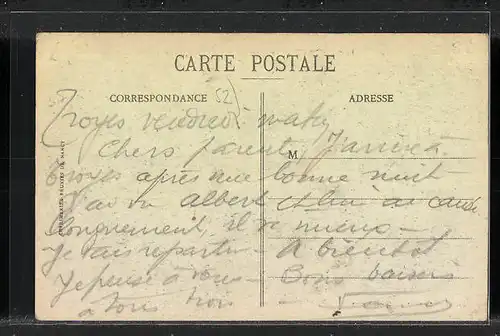 CARTE POSTALE
CORRESPONDANCE 52
ADRESSE
Troyes vendredi matin
Chers parents, J'arrive à
Troyes après une bonne nuit
J'ai vu Albert et lui ai causé
longuement, il va mieux -
Je vais repartir A bientôt
Je pense à vous - Bons baisers
à tous trois
M
IMPRIMERIES RÉUNIES DE NANCY